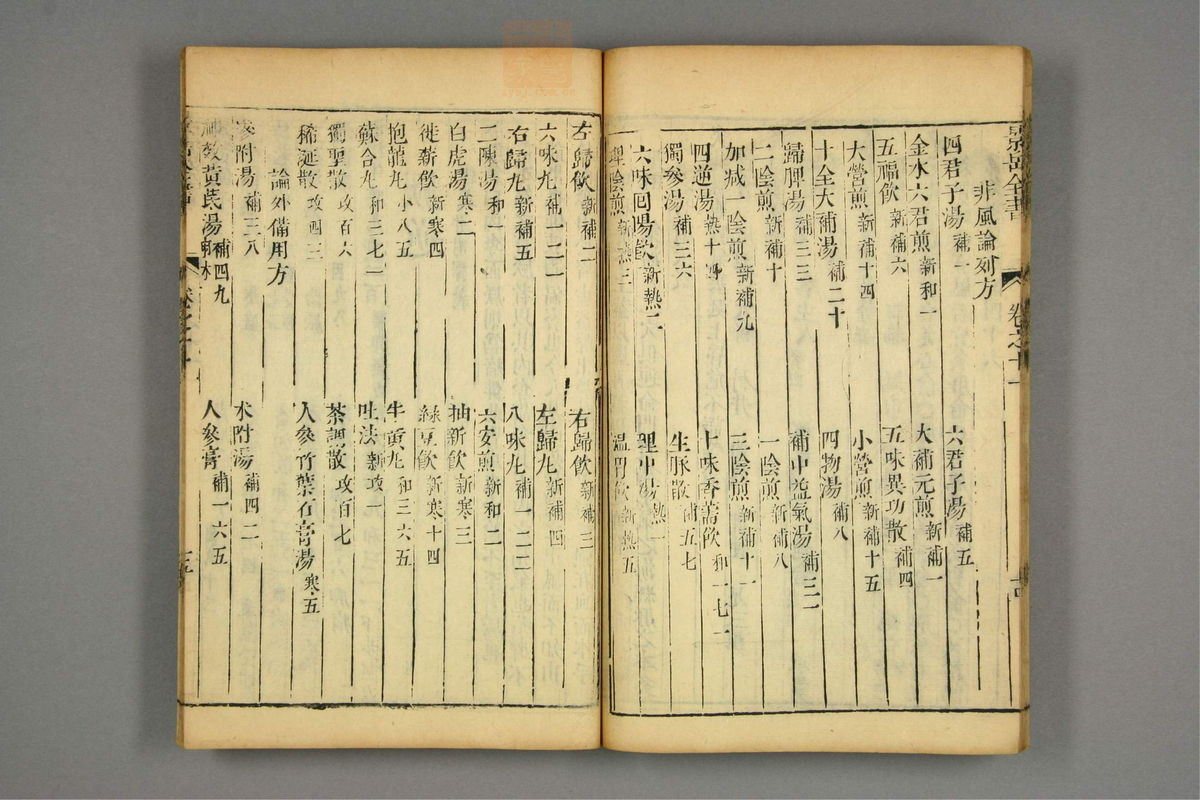 景岳全書 卷之十一
非風論列方
四君子湯 補一 六君子湯 補五
金水六君煎 新和一 大補元煎 新補一
五福飲 新補六 五味異功散 補四
大營煎 新補十四 小營煎 新補十五
十全大補湯 補二十 四物湯 補八
歸脾湯 補三三 補中益氣湯 補三一
二陰煎 新補十 一陰煎 新補八
加減一陰煎 新補九 三陰煎 新補十一
四逆湯 熱十四 十味香薷飲 和一七一
獨參湯 補三六 生脉散 補五七
六味回陽飲 新熱二 理中湯 熱一
理陰煎 新熱三 溫胃飲 新熱五
左歸飲 新補二 右歸飲 新補三
六味丸 補一二一 左歸丸 新補四
右歸丸 新補五 八味丸 補一二二
二陳湯 和一 六安煎 新和二
白虎湯 寒二 抽薪飲 新寒三
徙薪飲 新寒四 綠豆飲 新寒十四
抱龍丸 小八五 牛黃丸 和三六五
蘇合丸 和三七一 吐法 新攻一
獨聖散 攻百六 茶調散 攻百七
稀涎散 攻四三 人參竹葉石膏湯 寒五
論外備用方
參附湯 補三八 术附湯 補四二
神效黃芪湯 補四九 麻木 人參膏 補一六五